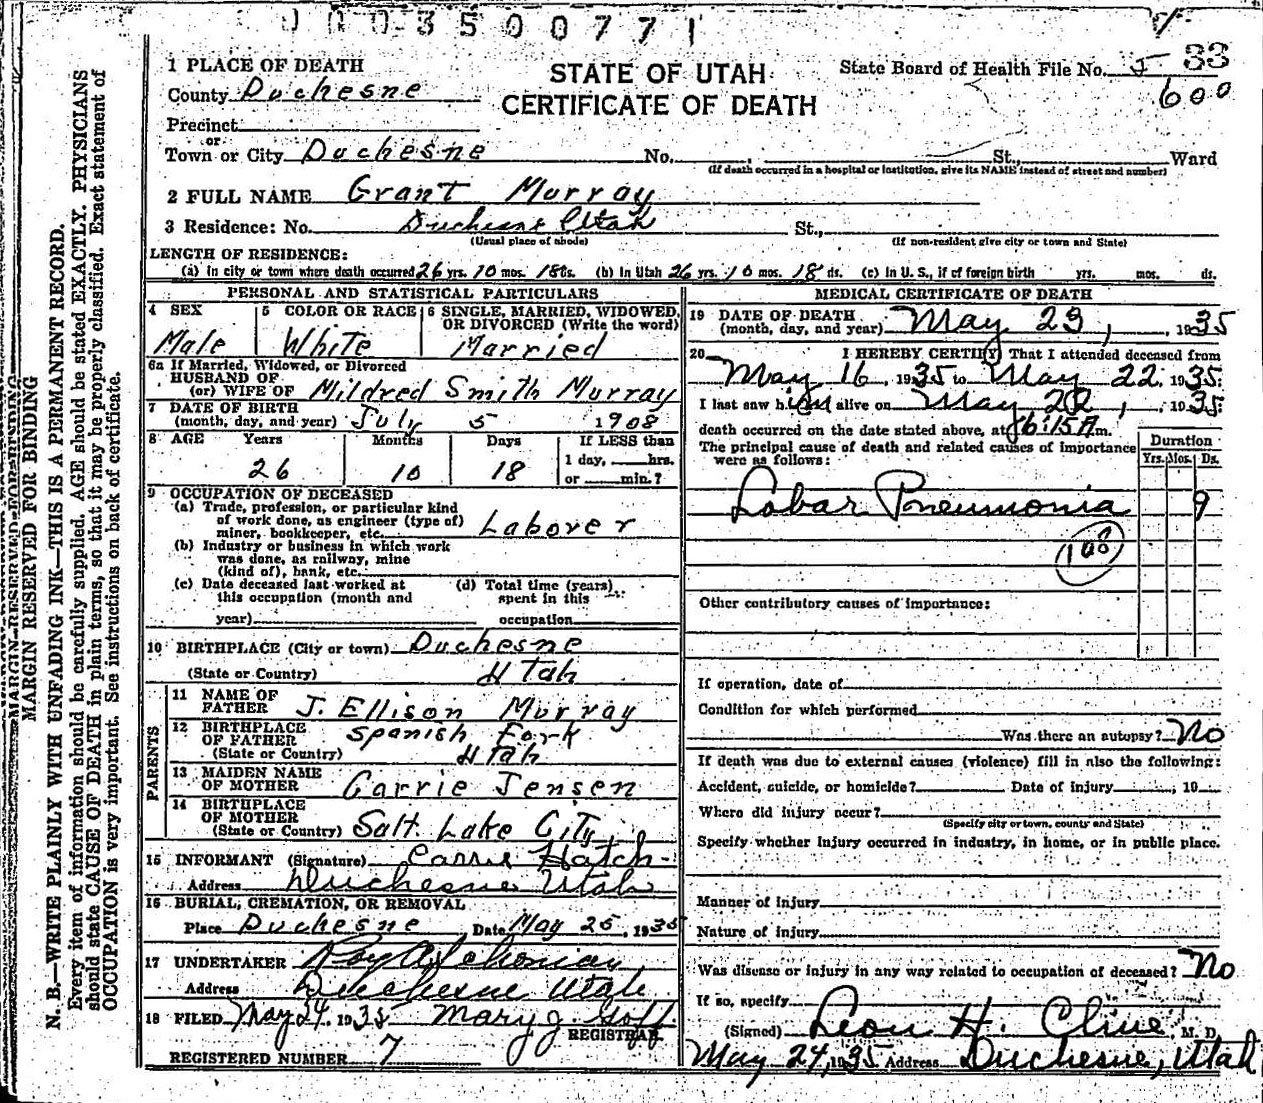 0003500771
1 PLACE OF DEATH
County Duchesne
STATE OF UTAH
CERTIFICATE OF DEATH
State Board of Health File No. 33
600
Precinct
or
Town or City Duchesne No. St., Ward
(If death occurred in a hospital or institution, give its NAME instead of street and number)
2 FULL NAME Grant Murray
3 Residence: No. Duchesne Utah St.,
(Usual place of abode) (If non-resident give city or town and State)
LENGTH OF RESIDENCE:
(a) In city or town where death occurred 26 yrs. 10 mos. 18 ds. (b) In Utah 26 yrs. 10 mos. 18 ds. (c) In U. S., if of foreign birth yrs. mos. ds.
PERSONAL AND STATISTICAL PARTICULARS
4 SEX 5 COLOR OR RACE 6 SINGLE, MARRIED, WIDOWED,
OR DIVORCED (Write the word)
Male White Married
6a If Married, Widowed, or Divorced
HUSBAND OF
(or) WIFE OF Mildred Smith Murray
7 DATE OF BIRTH
(month, day, and year) July 5 1908
8 AGE Years Months Days If LESS than
1 day, hrs.
26 10 18 or min.?
9 OCCUPATION OF DECEASED
(a) Trade, profession, or particular kind
of work done, as engineer (type of)
miner, bookkeeper, etc. Laborer
(b) Industry or business in which work
was done, as railway, mine
(kind of), bank, etc.
(c) Date deceased last worked at (d) Total time (years)
this occupation (month and spent in this
year) occupation
10 BIRTHPLACE (City or town) Duchesne
(State or Country) Utah
PARENTS
11 NAME OF
FATHER J. Ellison Murray
12 BIRTHPLACE Spanish Fork
OF FATHER
(State or Country) Utah
13 MAIDEN NAME
OF MOTHER Carrie Jensen
14 BIRTHPLACE
OF MOTHER
(State or Country) Salt Lake City
15 INFORMANT (Signature) Carrie Hatch
Address Duchesne Utah
16 BURIAL, CREMATION, OR REMOVAL
Place Duchesne Date May 25, 1935
17 UNDERTAKER Roy A
Address Duchesne Utah
18 FILED May 24, 1935 Mary J Goff
REGISTRAR
REGISTERED NUMBER 7
MEDICAL CERTIFICATE OF DEATH
19 DATE OF DEATH
(month, day, and year) May 23, 1935
20 I HEREBY CERTIFY That I attended deceased from
May 16, 1935 to May 22, 1935.
I last saw him alive on May 22, 1935.
death occurred on the date stated above, at 6:15 A m.
The principal cause of death and related causes of importance
were as follows:
Duration
Yrs. Mos. Ds.
Lobar Pneumonia 9
108
Other contributory causes of importance:
If operation, date of
Condition for which performed
Was there an autopsy? No
If death was due to external causes (violence) fill in also the following:
Accident, suicide, or homicide? Date of injury , 19
Where did injury occur?
(Specify city or town, county and State)
Specify whether injury occurred in industry, in home, or in public place.
Manner of injury
Nature of injury
Was disease or injury in any way related to occupation of deceased? No
If so, specify
(Signed) Leon H. Cline M. D.
May 24, 1935 Address Duchesne, Utah
MARGIN RESERVED FOR BINDING
MARGIN RESERVED FOR BINDING
N. B.—WRITE PLAINLY WITH UNFADING INK—THIS IS A PERMANENT RECORD.
Every item of information should be carefully supplied. AGE should be stated EXACTLY. PHYSICIANS
should state CAUSE OF DEATH in plain terms, so that it may be properly classified. Exact statement of
OCCUPATION is very important. See instructions on back of certificate.